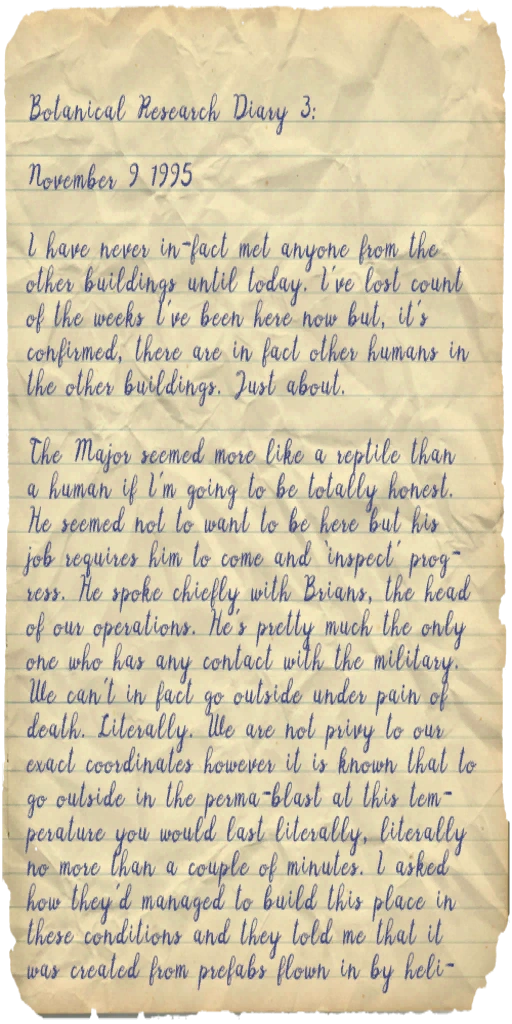 Botanical Research Diary 3:
November 9 1995
I have never in-fact met anyone from the
other buildings until today. I've lost count
of the weeks I've been here now but, it's
confirmed, there are in fact other humans in
the other buildings. Just about.
The Major seemed more like a reptile than
a human if I'm going to be totally honest.
He seemed not to want to be here but his
job requires him to come and 'inspect' prog-
ress. He spoke chiefly with Brians, the head
of our operations. He's pretty much the only
one who has any contact with the military.
We can't in fact go outside under pain of
death. Literally. We are not privy to our
exact coordinates however it is known that to
go outside in the perma-blast at this tem-
perature you would last literally, literally
no more than a couple of minutes. I asked
how they'd managed to build this place in
these conditions and they told me that it
was created from prefabs flown in by heli-